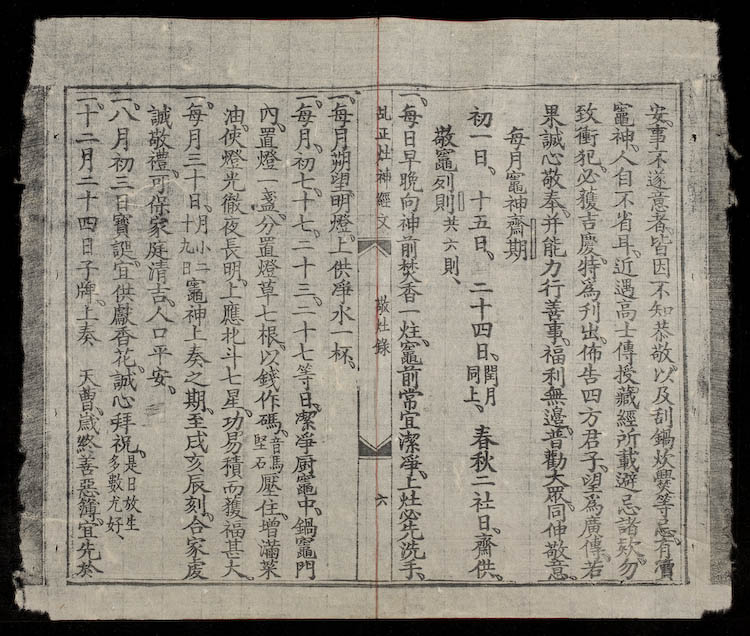 安、事不遂意者、皆因不知恭敬、以及刮鍋炊爨等忌、有瀆
竈神、人自不省耳、近遇高士傳授藏經所載避忌諸欵、勿
致衝犯、必獲吉慶、特為刊出、佈告四方君子、望為廣傳、若
果誠心敬奉、并能力行善事、福利無邊、普勸大眾、同伸敬意、
每月竈神齋期
初一日、十五日、二十四日、閏月同上、春秋二社日、齋供、
敬竈列則共六則、
一、每日早晚向神前焚香一炷、竈前常宜潔淨、上灶必先洗手、
乩正灶神經文 敬灶錄 六
一、每月朔望、明燈、上供凈水一杯、
一、每月初七、十七、二十三、二十七等日、潔淨厨竈中、鍋竈門
內、置燈一盞、分置燈草七根、以錢作碼、音馬堅石壓住、增滿菜
油、使燈光徹夜長明、上應北斗七星、功易積而獲福甚大、
一、每月三十日、月小二十九日竈神上奏之期、至戌亥辰刻、合家虔
誠敬禮、可保家庭清吉、人口平安、
一、八月初三日寶誕、宜供獻香花、誠心拜祝、是日放生多數尤好、
一、十二月二十四日子牌、上奏 天曹、歲終善惡簿、宜先於